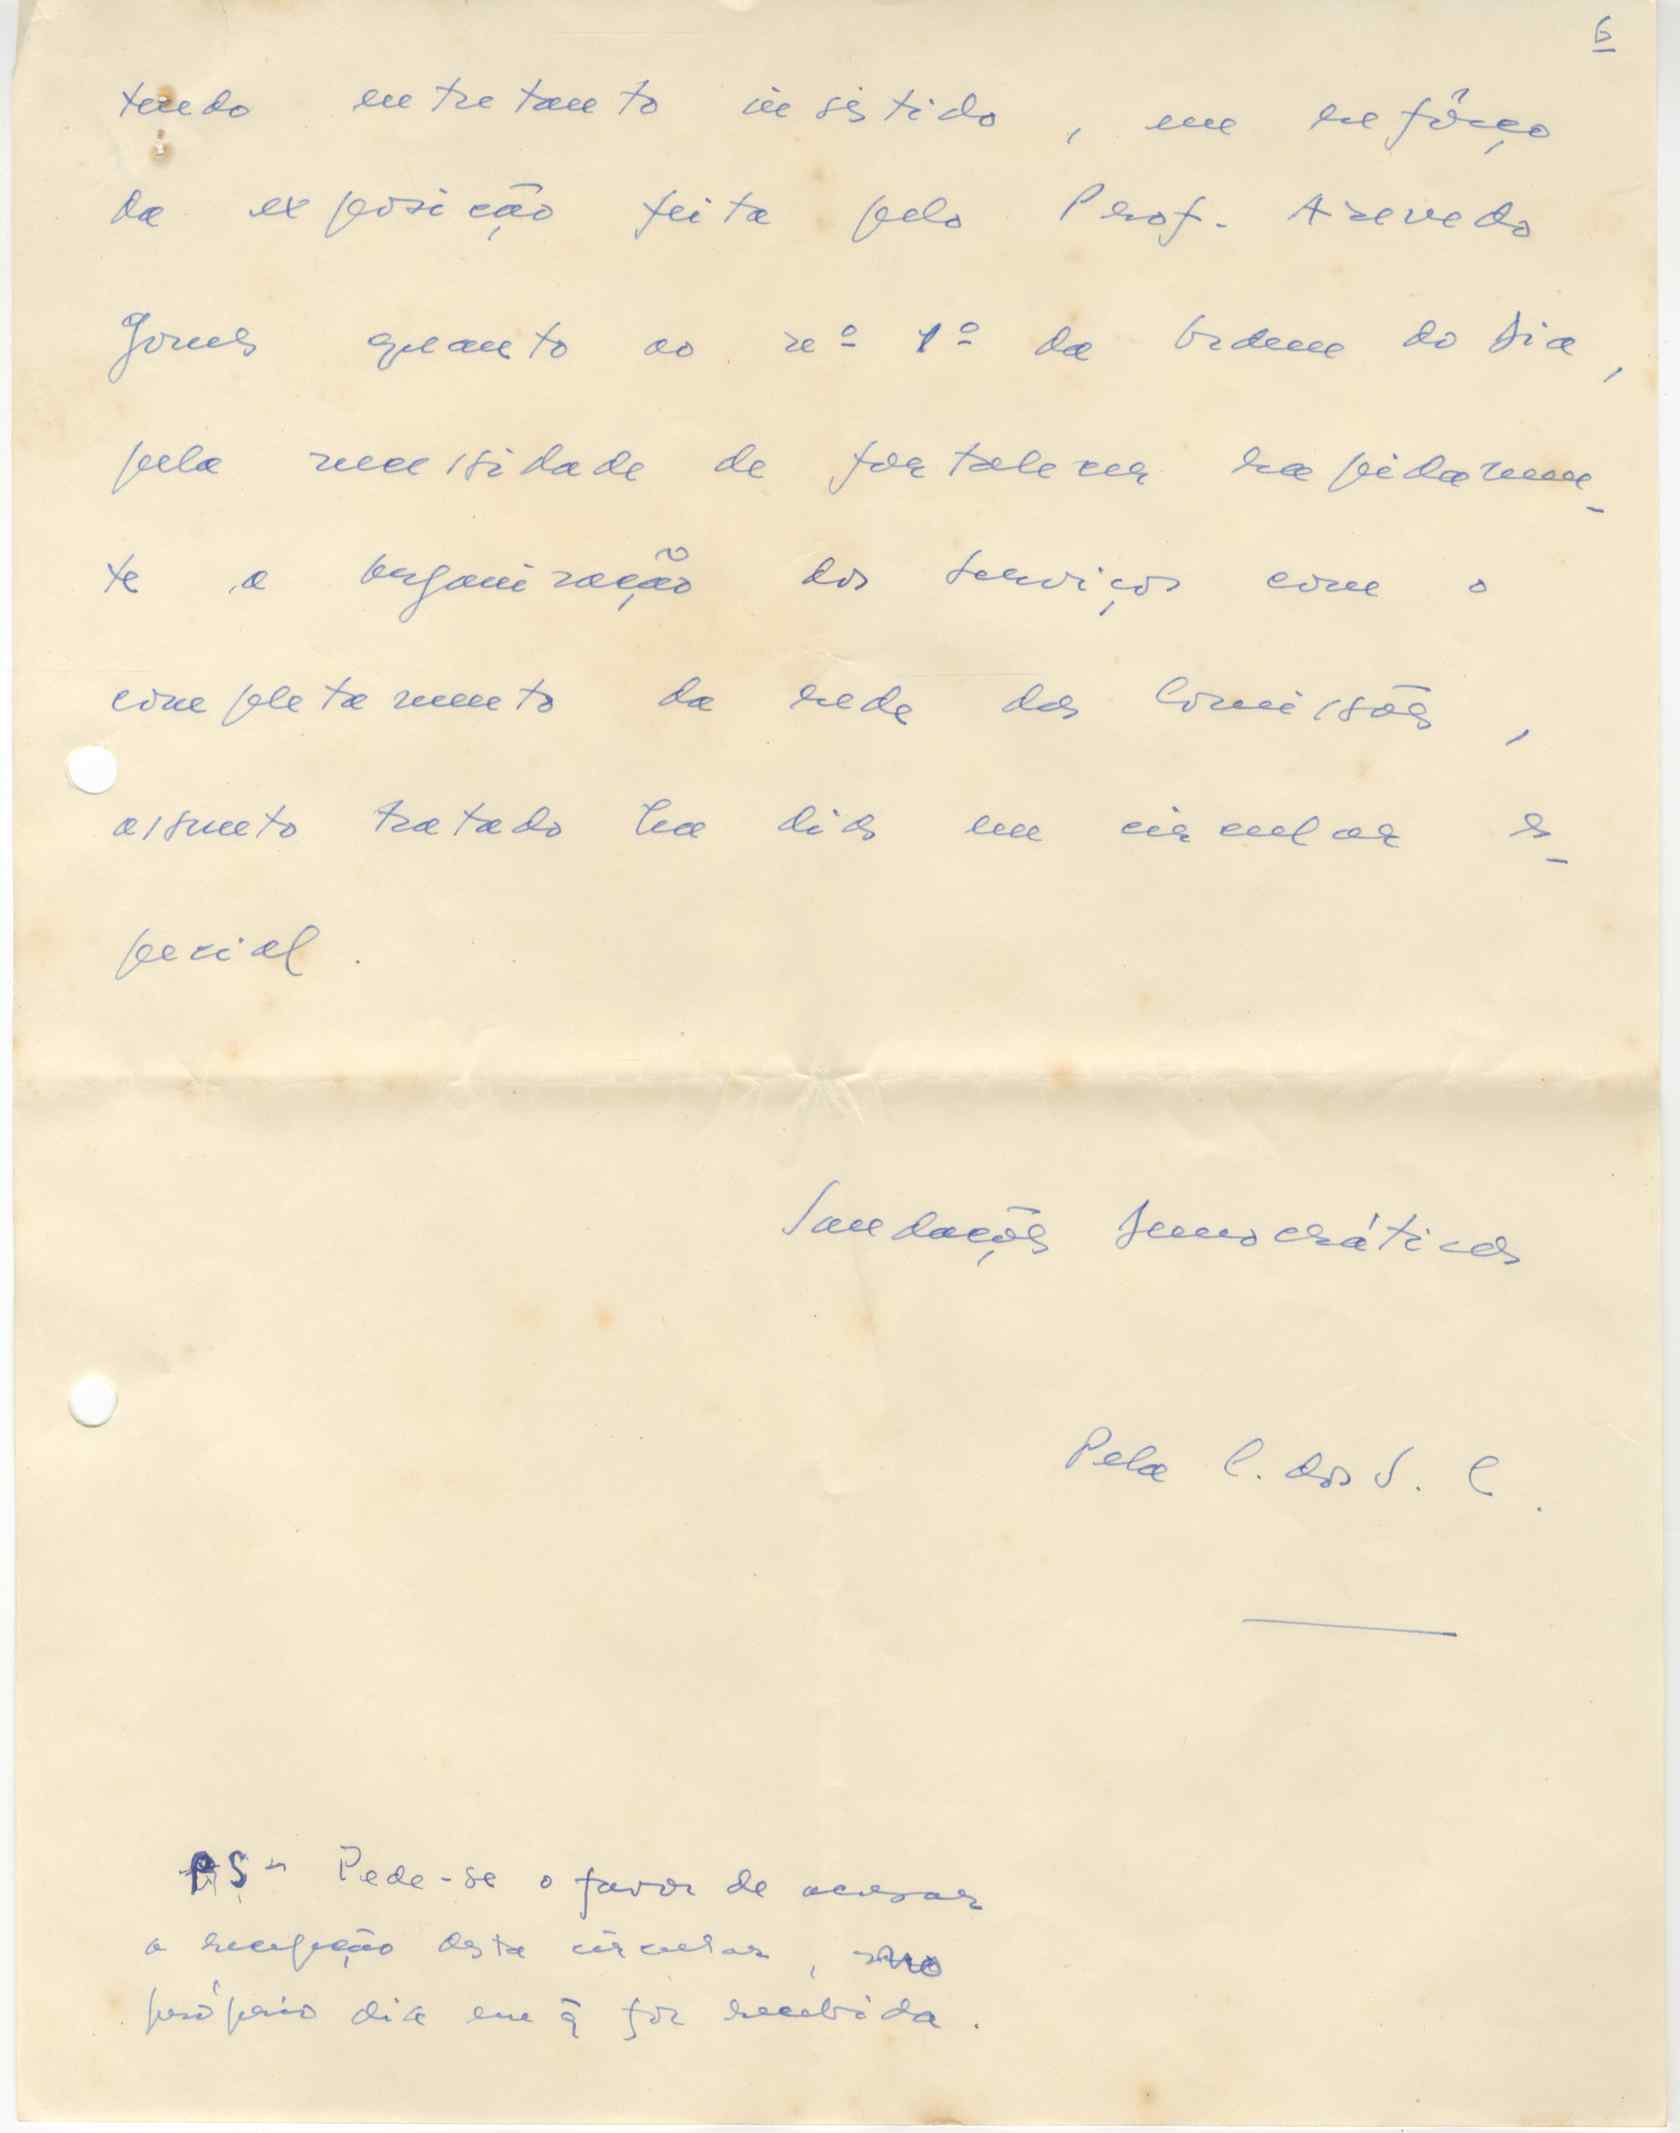 6
tendo entretanto insistido, em refôrço
da exposição feita pelo Prof. Azevedo
Gomes quanto ao nº 1º da Ordem do Dia,
pela necessidade de fortalecer rapidamen-
te a organização dos Serviços com o
completamento da rede das Comissões,
assunto tratado ha dias em circular es-
pecial.
Saudações Democráticas
Pela C. dos S. C.
PS- Pede-se o favor de acusar
a recepção desta circular, no
próprio dia em q̃ fôr recebida.